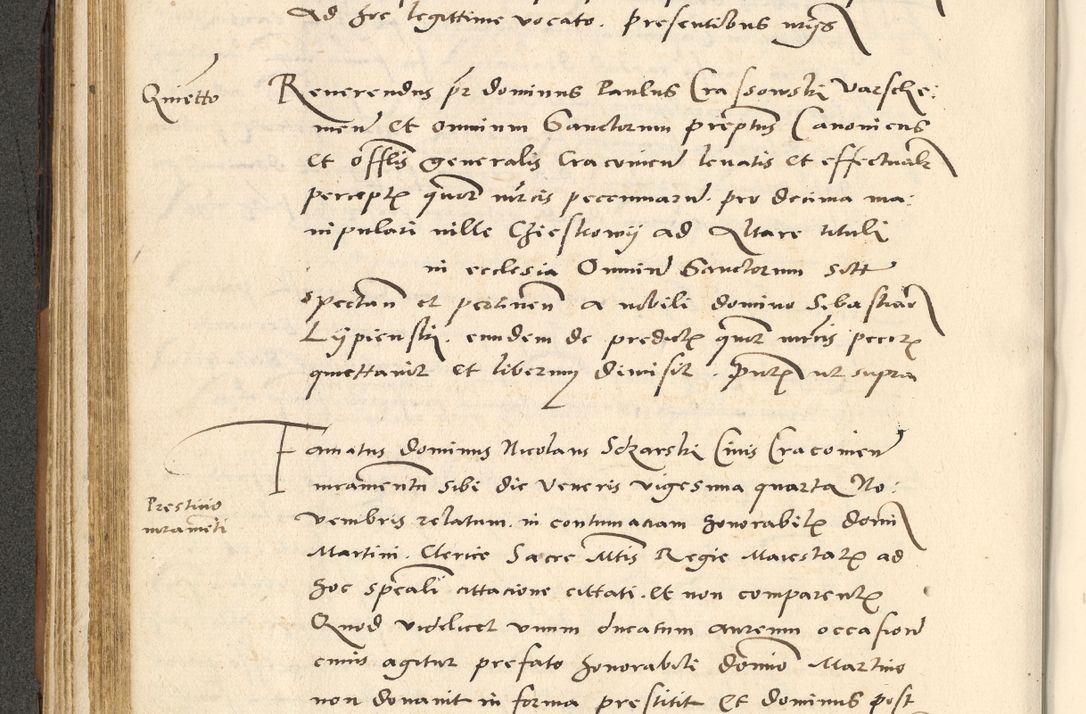 Ad hoc legittime vocato. presentibus
Quietto
Reverendus pr dominus Paulus Crassowski Varsche:
mien et Omnium Sanctorum preptus Canonicus
et offlis generalis Cracovien levatis et effectualr
perceptis quor mrcis pecuniarum pro decima ma:
nipulari ville Chiestrowij ad Altare tituli
in ecclesia Omnium Sanctorum
spectan et pertinen a nobili domino Sebastiano
Lypienski. eundem de predictis quor mrcis pecc
quiettavit et liberum dimisit. ut supra
Famatus dominus Nicolaus Sdzarski Civis Cracovien
iuramentum sibi die Veneris vigesima quarta No:
Prestitio
iurameti
vembris relatum in contumaciam honorabilis domi
Martini. Clerice Sacre Mtis Regie Maiestatis ad
hoc speali cittacione cittati. et non comparentis
Quod videlicet unum ducatum aureum occasione
cuius agitur prefato honorabili domino Martino
non donavit in forma prestitit Et dominus post